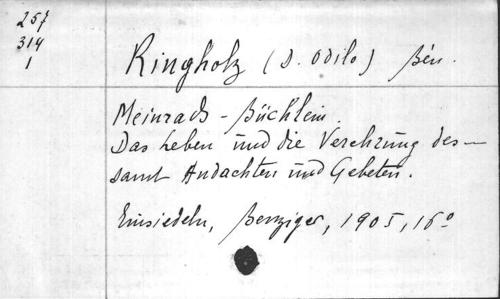 257
314
1
Ringholz (D. Odilo) Bén.
Meinrads-Büchlein.
Das Leben und die Verehrung des—
samt Andachten und Gebeten.
Einsiedeln, Benziger, 1905, 16º